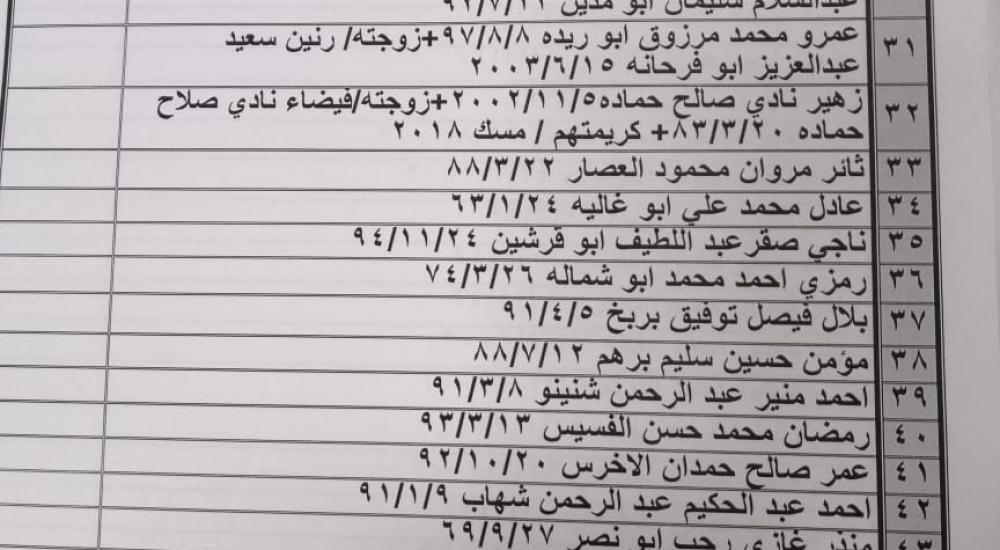 عبدالسلام سليمان ابو مدين
٣١ عمرو محمد مرزوق ابو ريده ٩٧/٨/٨+زوجته/ رنين سعيد
عبدالعزيز ابو فرحانه ٢٠٠٣/٦/١٥
٣٢ زهير نادي صالح حماده٢٠٠٢/١١/٥+زوجته/فيضاء نادي صلاح
حماده ٨٣/٣/٢٠+ كريمتهم / مسك ٢٠١٨
٣٣ ثائر مروان محمود العصار ٨٨/٣/٢٢
٣٤ عادل محمد علي ابو غاليه ٦٣/١/٢٤
٣٥ ناجي صقرعبد اللطيف ابو قرشين ٩٤/١١/٢٤
٣٦ رمزي احمد محمد ابو شماله ٧٤/٣/٢٦
٣٧ بلال فيصل توفيق بربخ ٩١/٤/٥
٣٨ مؤمن حسين سليم برهم ٨٨/٧/١٢
٣٩ احمد منير عبد الرحمن شنينو ٩١/٣/٨
٤٠ رمضان محمد حسن الفسيس ٩٣/٣/١٣
٤١ عمر صالح حمدان الاخرس ٩٢/١٠/٢٠
٤٢ احمد عبد الحكيم عبد الرحمن شهاب ٩١/١/٩
٤٣ منذر غازي رجب ابو نصر ٦٩/٩/٢٧